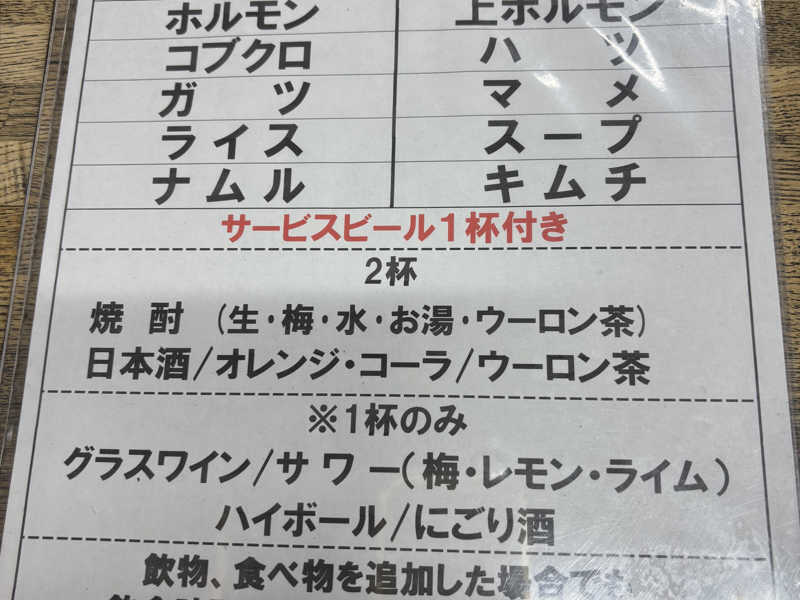 ホルモン 上ホルモン
コブクロ ハツ
ガツ マメ
ライス スープ
ナムル キムチ
サービスビール1杯付き
2杯
焼酎 (生・梅・水・お湯・ウーロン茶)
日本酒/オレンジ・コーラ/ウーロン茶
※1杯のみ
グラスワイン/サワー(梅・レモン・ライム)
ハイボール/にごり酒
飲物、食べ物を追加した場合でも